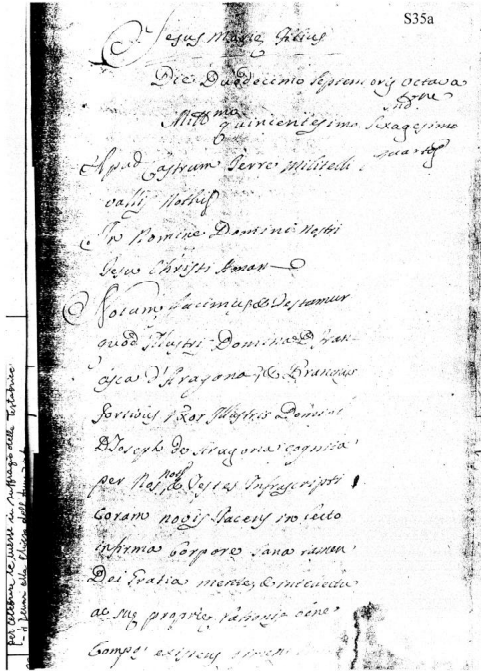 S35a
Jesus Marie Filius
Die Duodecimo Septembris octava
Ind.ne
Mill.mo quincentesimo sexagesimo
quarto
Apud Castrum Terre Militelli
vallis Nothi
In Nomine Domini Nostri
Jesu Christi Amen
Notum facimus & Testamur
quod Illustris Domina D. Fran-
cisca D'Aragona, & Branciis
uxor Illustris Domini
D. Joseph de Aragona cognita
per Nos not. & Testes Infrascripti
Coram nobis Jacens in lecto
infirma Corpore sana tamen
Dei Gratia mente, & intellectu
ac sue proprie rationis bene
Compos existens
per celebrare le messe in suffragio della Testatrice